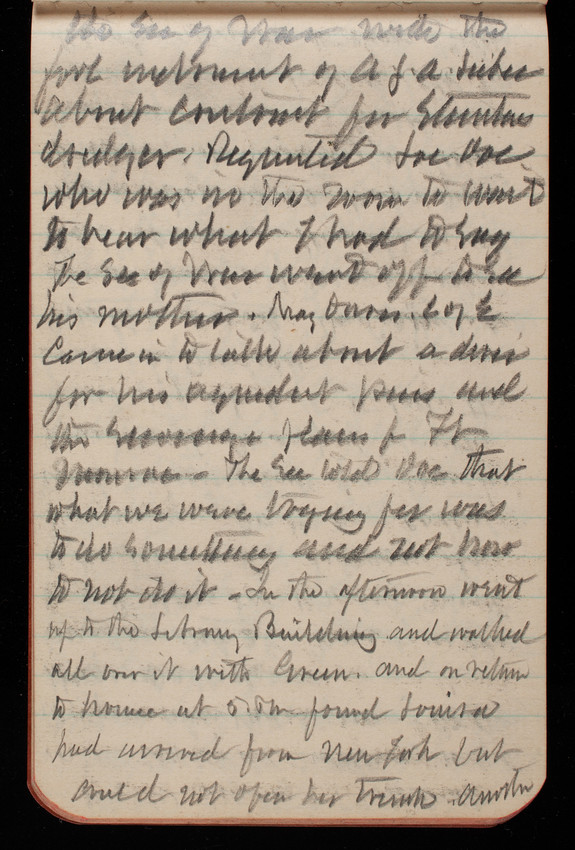 the Sec of War with the
for instrument of A & A
about contract for
dredger. Requested Joe Doe
who was in the room to wait
to hear what I had to say
The Sec of War went off to see
his mother. Maj Davis. C of E
came in to talk about a
for his aqueduct and
the Sewerage plans for Ft
Monroe - The Sec told Doe that
what we were trying for was
to do something and not how
to not do it - In the afternoon went
up to the Library Building and walked
all over it with Green. and on return
to house at 5 P.M. found Louisa
had arrived from New York but
could not open her trunk. Another